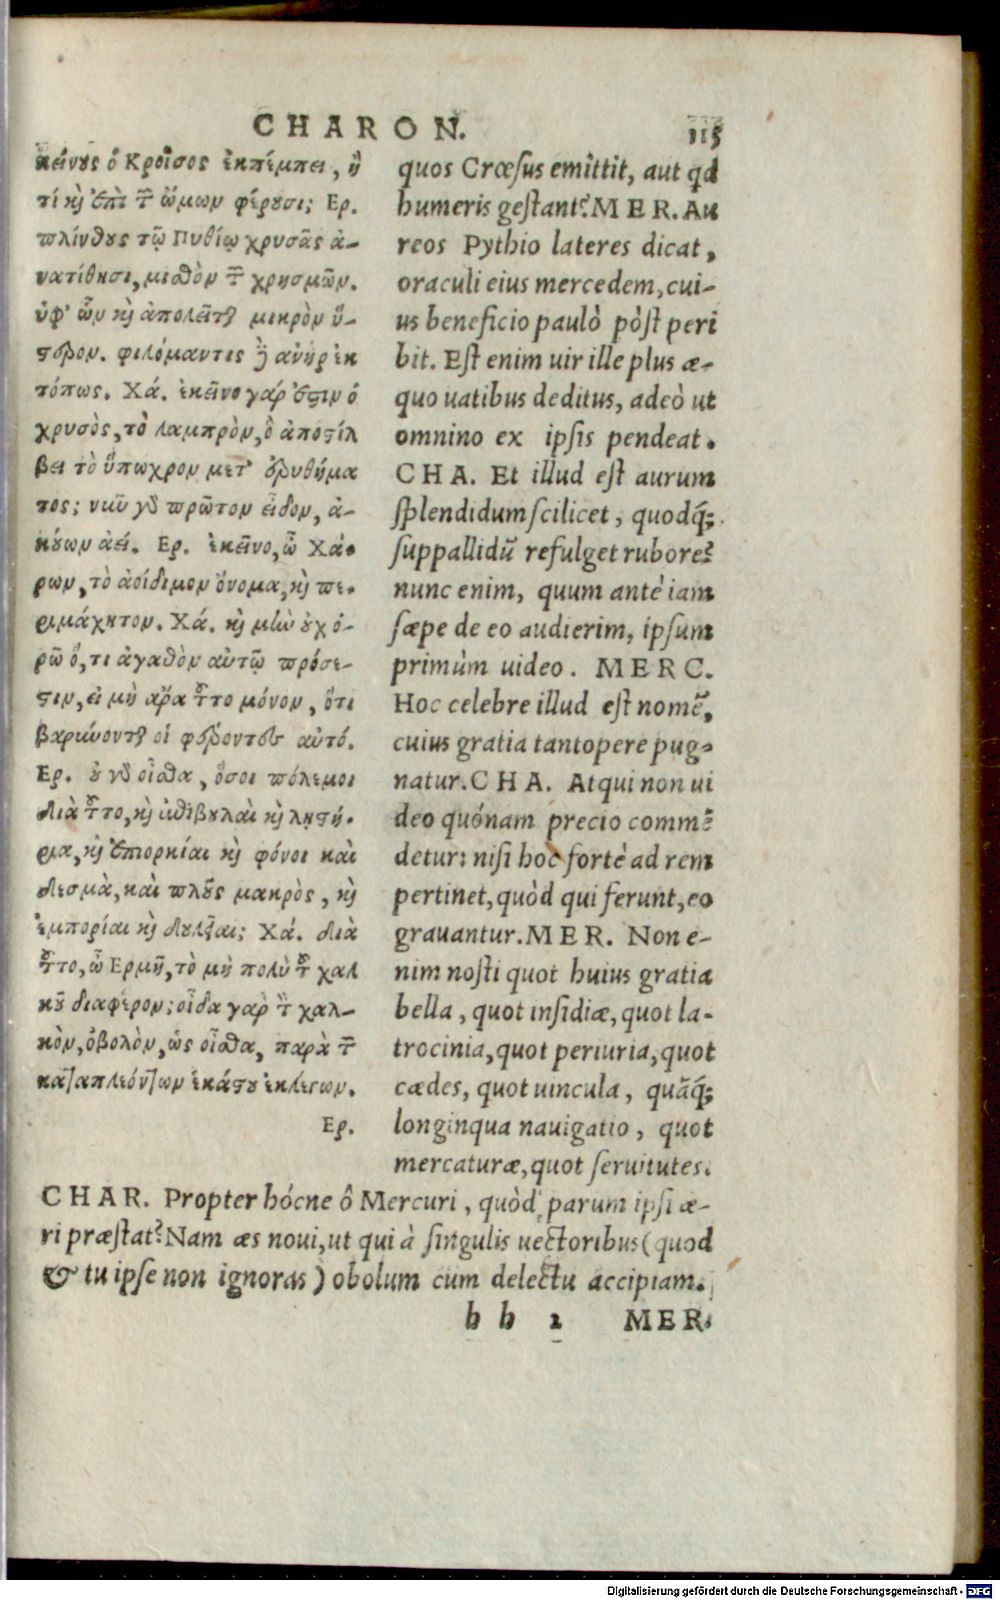 CHARON. 115
κείνους ὁ Κροῖσος ἐκπέμπει, ἢ
τί κỳ ἐπὶ τ῀ ὤμων φέρουσι; Ερ.
πλίνθους τῷ Πυθίῳ χρυσᾶς ἀ-
νατίθησι, μισθὸν τ῀ χρησμῶν.
ὑφ' ὧν κỳ ἀπολεῖται μικρὸν ὕ-
στερον. φιλόμαντις δὲ ἀνὴρ ἐκ
τόπως. Χά. ἐκεῖνο γάρ ἐστιν ὁ
χρυσὸς, τὸ λαμπρὸν, ὃ ἀποστίλ
βει τὸ ὕπωχρον μετ' ἐρυθήμα
τος; νῦν γὸ πρῶτον εἶδον, ἀ-
κούων ἀεί. Ερ. ἐκεῖνο, ὦ Χά-
ρων, τὸ ἀοίδιμον ὄνομα, κỳ πε-
ριμάχητον. Χά. κỳ μὴν οὐχ ὁ-
ρῶ ὅ, τι ἀγαθὸν αὐτῷ πρόσε-
στιν, εἰ μὴ ἄρα τοῦτο μόνον, ὅτι
βαρύνονται οἱ φέροντες αὐτό.
Ερ. οὐ γὸ οἶσθα, ὅσοι πόλεμοι
διὰ τοῦτο, κỳ ἐπιβουλαὶ κỳ λῃστή-
ρια, κỳ ἐπιορκίαι κỳ φόνοι καὶ
δεσμὰ, καὶ πλοῦς μακρὸς, κỳ
ἐμπορίαι κỳ δουλεῖαι; Χά. διὰ
τοῦτο, ὦ Ερμῆ, τὸ μὴ πολὺ τοῦ χαλ
κοῦ διαφέρον; οἶδα γὰρ τὸν χαλ-
κὸν, ὀβολὸν, ὡς οἶσθα, παρὰ τ῀
καταπλεόντων ἑκάστου ἐκλέγων.
Ερ.
quos Crœsus emittit, aut qd
humeris gestant? MER. Au
reos Pythio lateres dicat,
oraculi eius mercedem, cui-
us beneficio paulò pòst peri
bit. Est enim uir ille plus æ-
quo uatibus deditus, adeò ut
omnino ex ipsis pendeat.
CHA. Et illud est aurum
splendidum scilicet, quodq́;
suppallidũ refulget rubore?
nunc enim, quum antè iam
sæpe de eo audierim, ipsum
primùm uideo. MERC.
Hoc celebre illud est nomẽ,
cuius gratia tantopere pug-
natur. CHA. Atqui non ui
deo quónam precio commẽ
detur: nisi hoc fortè ad rem
pertinet, quòd qui ferunt, eo
grauantur. MER. Non e-
nim nosti quot huius gratia
bella, quot insidiæ, quot la-
trocinia, quot periuria, quot
cædes, quot uincula, quãq́;
longinqua nauigatio, quot
mercaturæ, quot seruitutes.
CHAR. Propter hócne ô Mercuri, quòd parum ipsi æ-
ri præstat? Nam æs noui, ut qui à singulis uectoribus (quod
& tu ipse non ignoras) obolum cum delectu accipiam.
bb 2 MER.
Digitalisierung gefördert durch die Deutsche Forschungsgemeinschaft - DFG